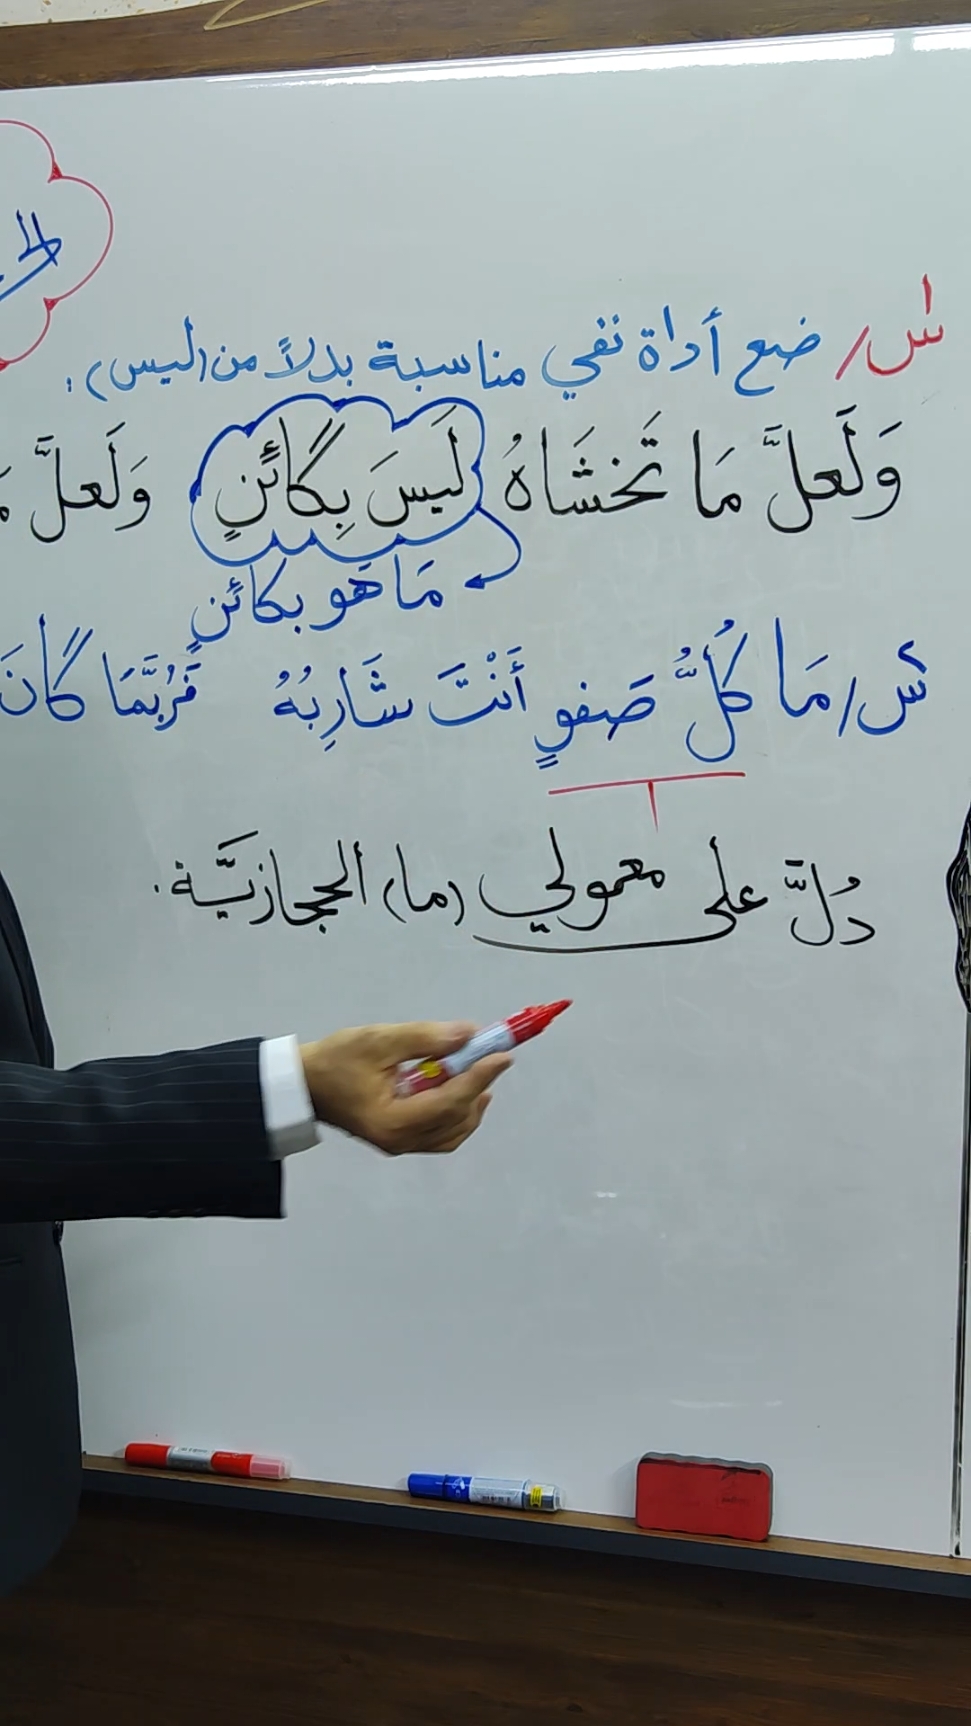 س١/ ضع أداة نفي مناسبة بدلاً من (ليس):
وَلَعلَّ مَا تَخشَاهُ لَيسَ بِكائَنٍ وَلَعلَّ
مَا هَو بكائَنٍ
س٢/ مَا كُلُّ صَفوٍ أَنْتَ شَارِبُهُ فَرُبَّمَا كَانَ
دُلَّ على معمولي (ما) ألحجازيَّة.